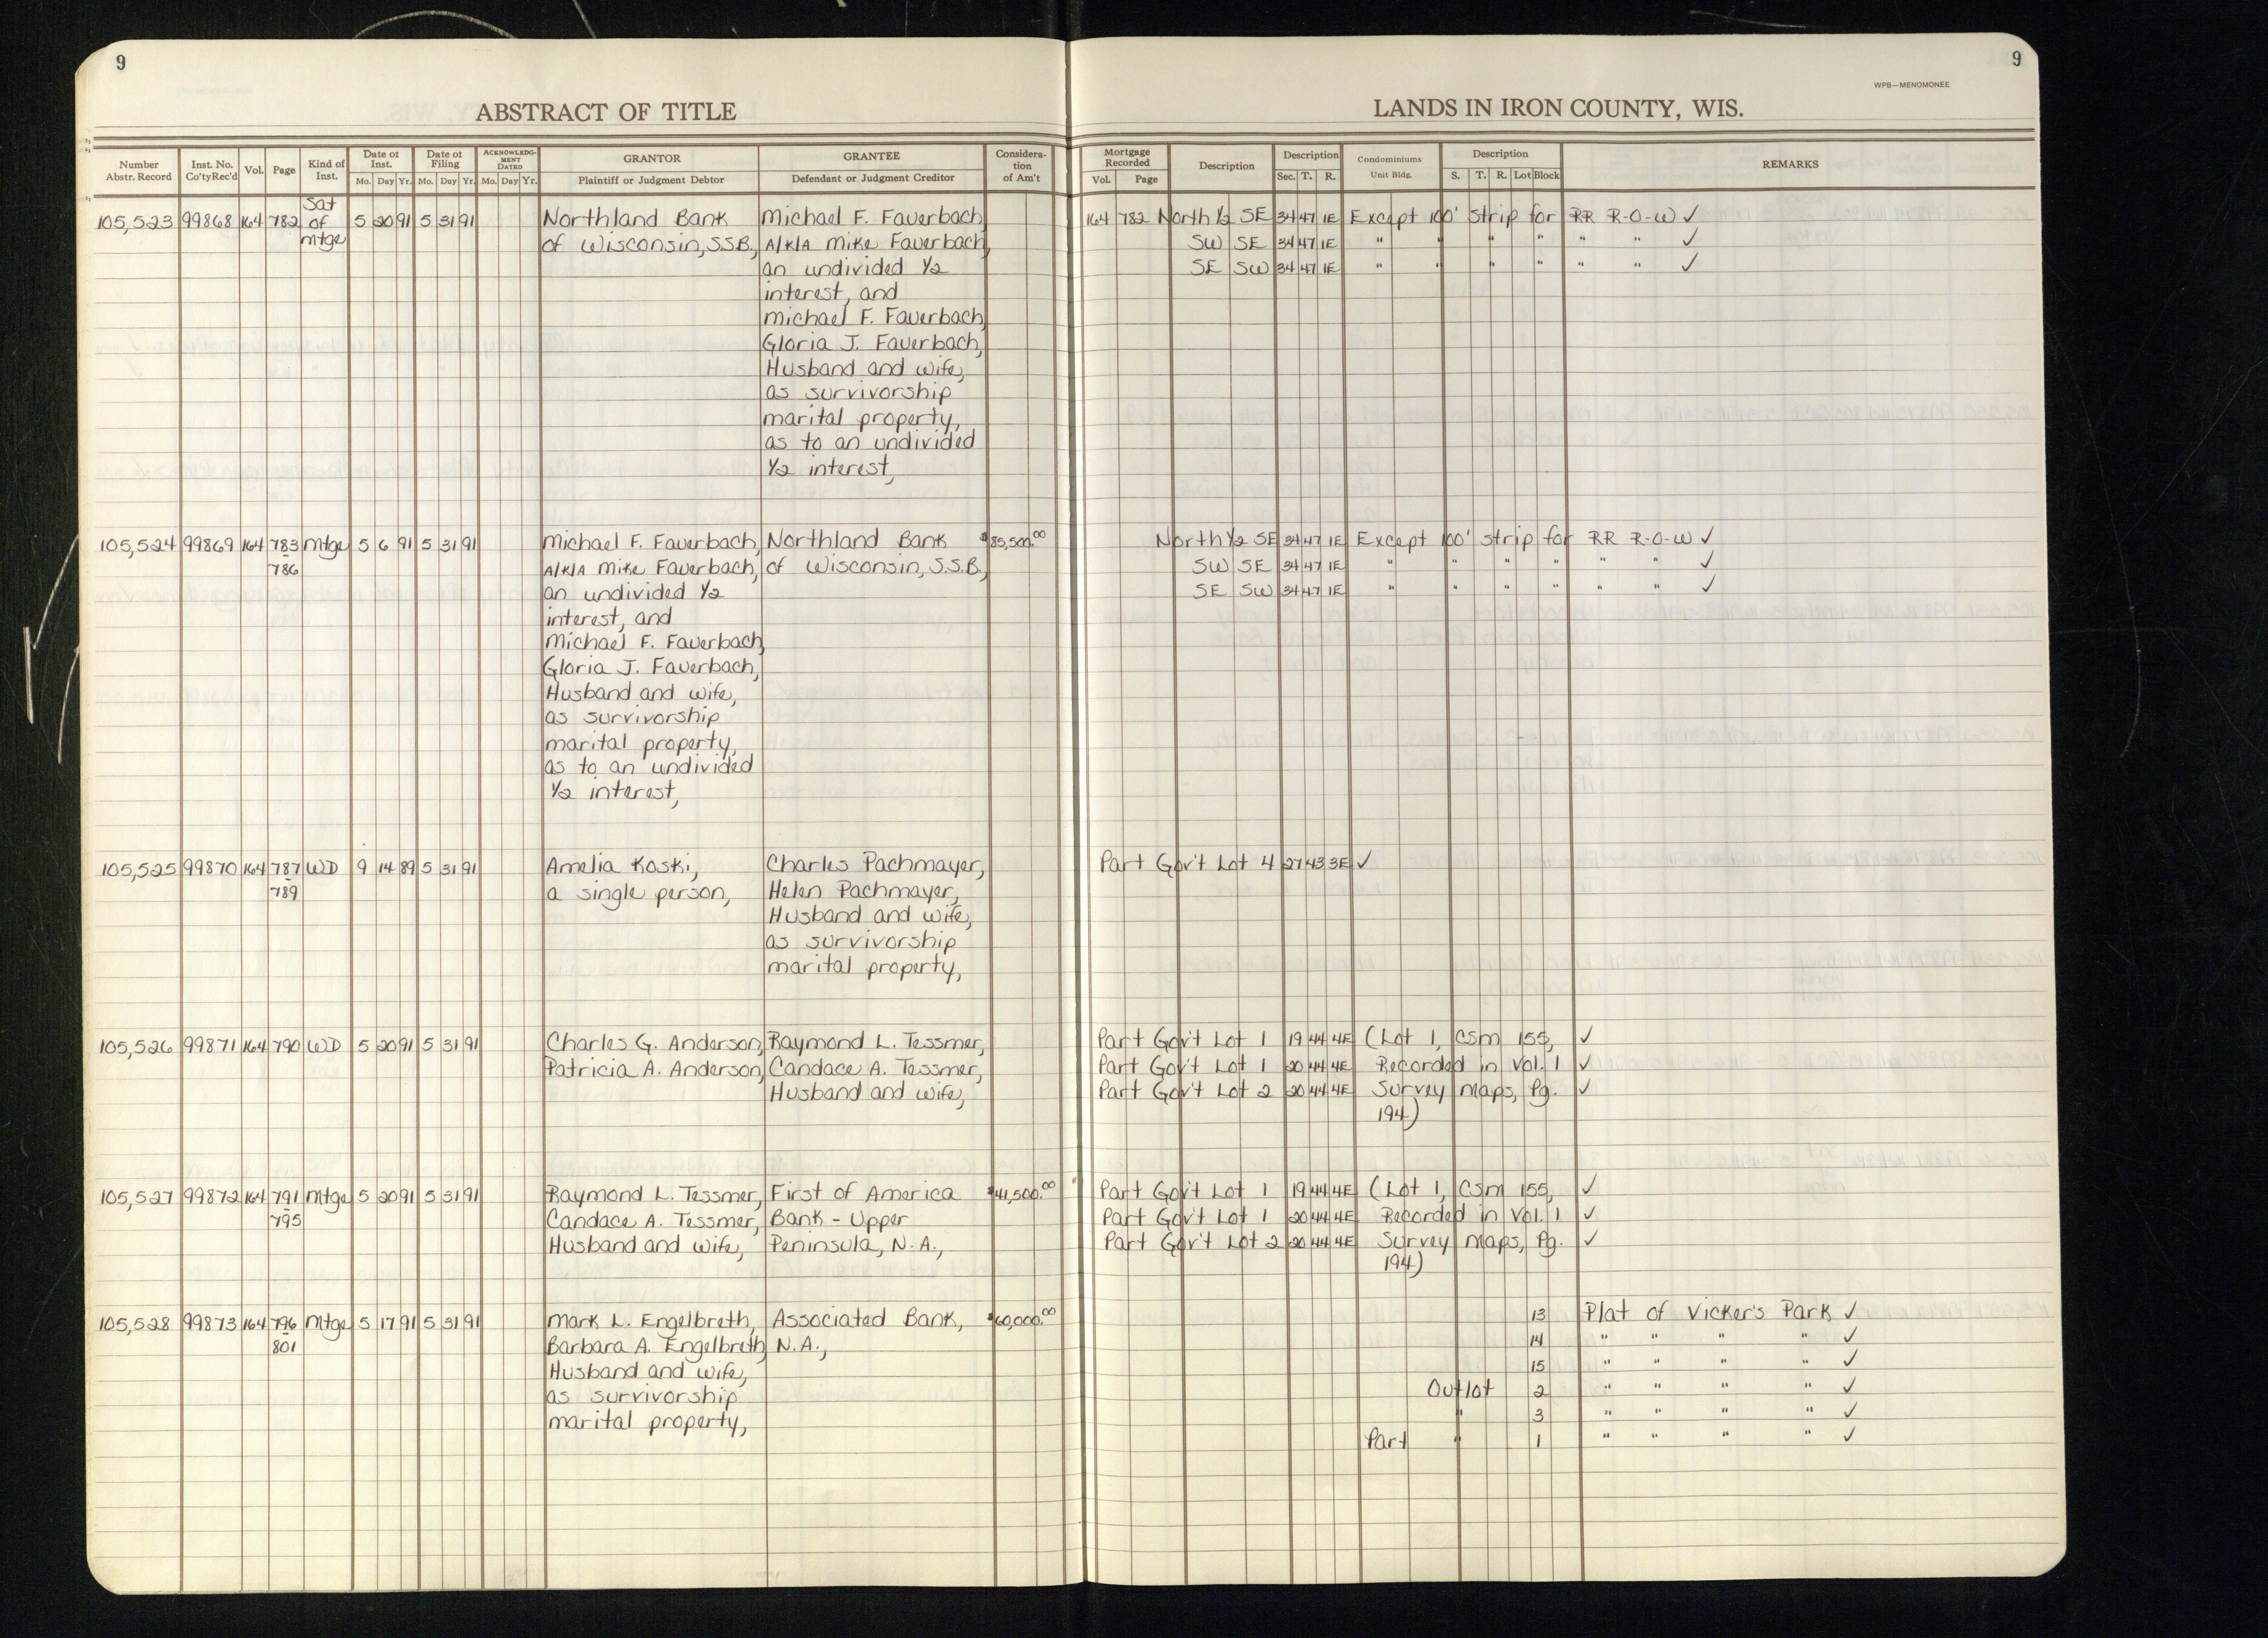 9
9
WPB—MENOMONEE
ABSTRACT OF TITLE
LANDS IN IRON COUNTY, WIS.
Number Abstr. Record | Inst. No. Co'tyRec'd | Vol. | Page | Kind of Inst. | Date of Inst. Mo. Day Yr. | Date of Filing Mo. Day Yr. | ACKNOWLEDGMENT DATED Mo. Day Yr. | GRANTOR Plaintiff or Judgment Debtor | GRANTEE Defendant or Judgment Creditor | Consideration of Am't | Mortgage Recorded Vol. Page | Description | Description Sec. T. R. | Condominiums Unit Bldg. | Description S. T. R. Lot Block | REMARKS
Sat
105,523 99868 164 782 of 5 20 91 5 31 91 Northland Bank Michael F. Fauerbach, 164 782 North ½ SE 34 47 1E Except 100' strip for RR R-O-W ✓
mtge of Wisconsin, S.S.B., A/K/A Mike Fauerbach, SW SE 34 47 1E " " " " " " ✓
an undivided ½ SE SW 34 47 1E " " " " " " ✓
interest, and
Michael F. Fauerbach,
Gloria J. Fauerbach,
Husband and wife,
as survivorship
marital property,
as to an undivided
½ interest,
105,524 99869 164 783 Mtge 5 6 91 5 31 91 Michael F. Fauerbach, Northland Bank $85,500.00 North ½ SE 34 47 1E Except 100' strip for RR R-O-W ✓
- 786 A/K/A Mike Fauerbach, of Wisconsin, S.S.B., SW SE 34 47 1E " " " " " " ✓
an undivided ½ SE SW 34 47 1E " " " " " " ✓
interest, and
Michael F. Fauerbach,
Gloria J. Fauerbach,
Husband and wife,
as survivorship
marital property,
as to an undivided
½ interest,
105,525 99870 164 787 WD 9 14 89 5 31 91 Amelia Koski, Charles Pachmayer, Part Gov't Lot 4 27 43 3E ✓
- 789 a single person, Helen Pachmayer,
Husband and wife,
as survivorship
marital property,
105,526 99871 164 790 WD 5 20 91 5 31 91 Charles G. Anderson, Raymond L. Tessmer, Part Gov't Lot 1 19 44 4E (Lot 1, CSM 155, ✓
Patricia A. Anderson, Candace A. Tessmer, Part Gov't Lot 1 20 44 4E Recorded in Vol. 1 ✓
Husband and wife, Part Gov't Lot 2 20 44 4E Survey Maps, Pg. ✓
194)
105,527 99872 164 791 Mtge 5 20 91 5 31 91 Raymond L. Tessmer, First of America $41,500.00 Part Gov't Lot 1 19 44 4E (Lot 1, CSM 155, ✓
- 795 Candace A. Tessmer, Bank - Upper Part Gov't Lot 1 20 44 4E Recorded in Vol. 1 ✓
Husband and wife, Peninsula, N.A., Part Gov't Lot 2 20 44 4E Survey Maps, Pg. ✓
194)
105,528 99873 164 796 Mtge 5 17 91 5 31 91 Mark L. Engelbreth, Associated Bank, $60,000.00 13 Plat of Vicker's Park ✓
- 801 Barbara A. Engelbreth, N.A., 14 " " " " ✓
Husband and wife, 15 " " " " ✓
as survivorship Outlot 2 " " " " ✓
marital property, " 3 " " " " ✓
Part " 1 " " " " ✓